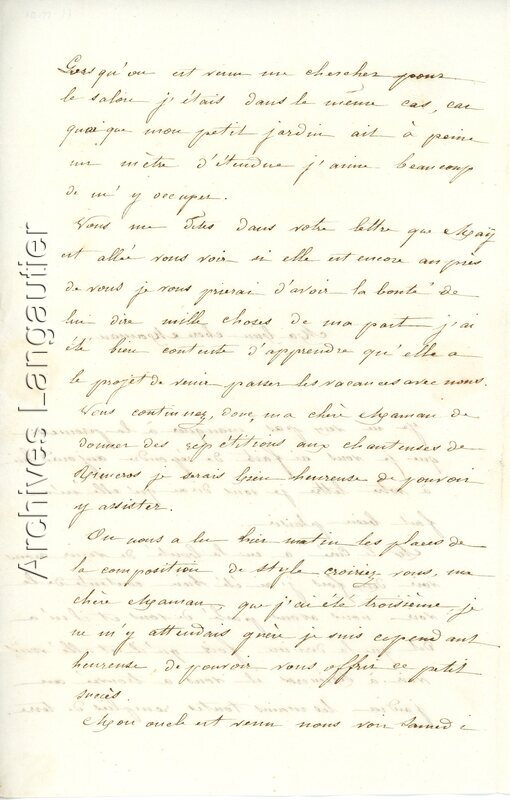 Lorsqu'on est venu me chercher pour
le salon j'étais dans le même cas, car
quoique mon petit jardin ait à peine
un mètre d'étendue j'aime beaucoup
de m'y occuper.
Vous me dites dans votre lettre que Maÿ
est allée vous voir si elle est encore auprès
de vous je vous prierai d'avoir la bonté de
lui dire mille choses de ma part j'ai
été bien contente d'apprendre qu'elle a
le projet de venir passer les vacances avec nous.
Vous continuez, donc, ma chère Maman de
donner des répétitions aux chanteuses de
je serais bien heureuse de pouvoir
y assister.
On nous a lu hier matin les places de
la composition de style croiriez vous, ma
chère Maman, que j'ai été troisième, je
ne m'y attendais guère je suis cependant
heureuse, de pouvoir vous offrir ce petit
succès.
Mon oncle est venu nous voir Samedi
Archives Langautier